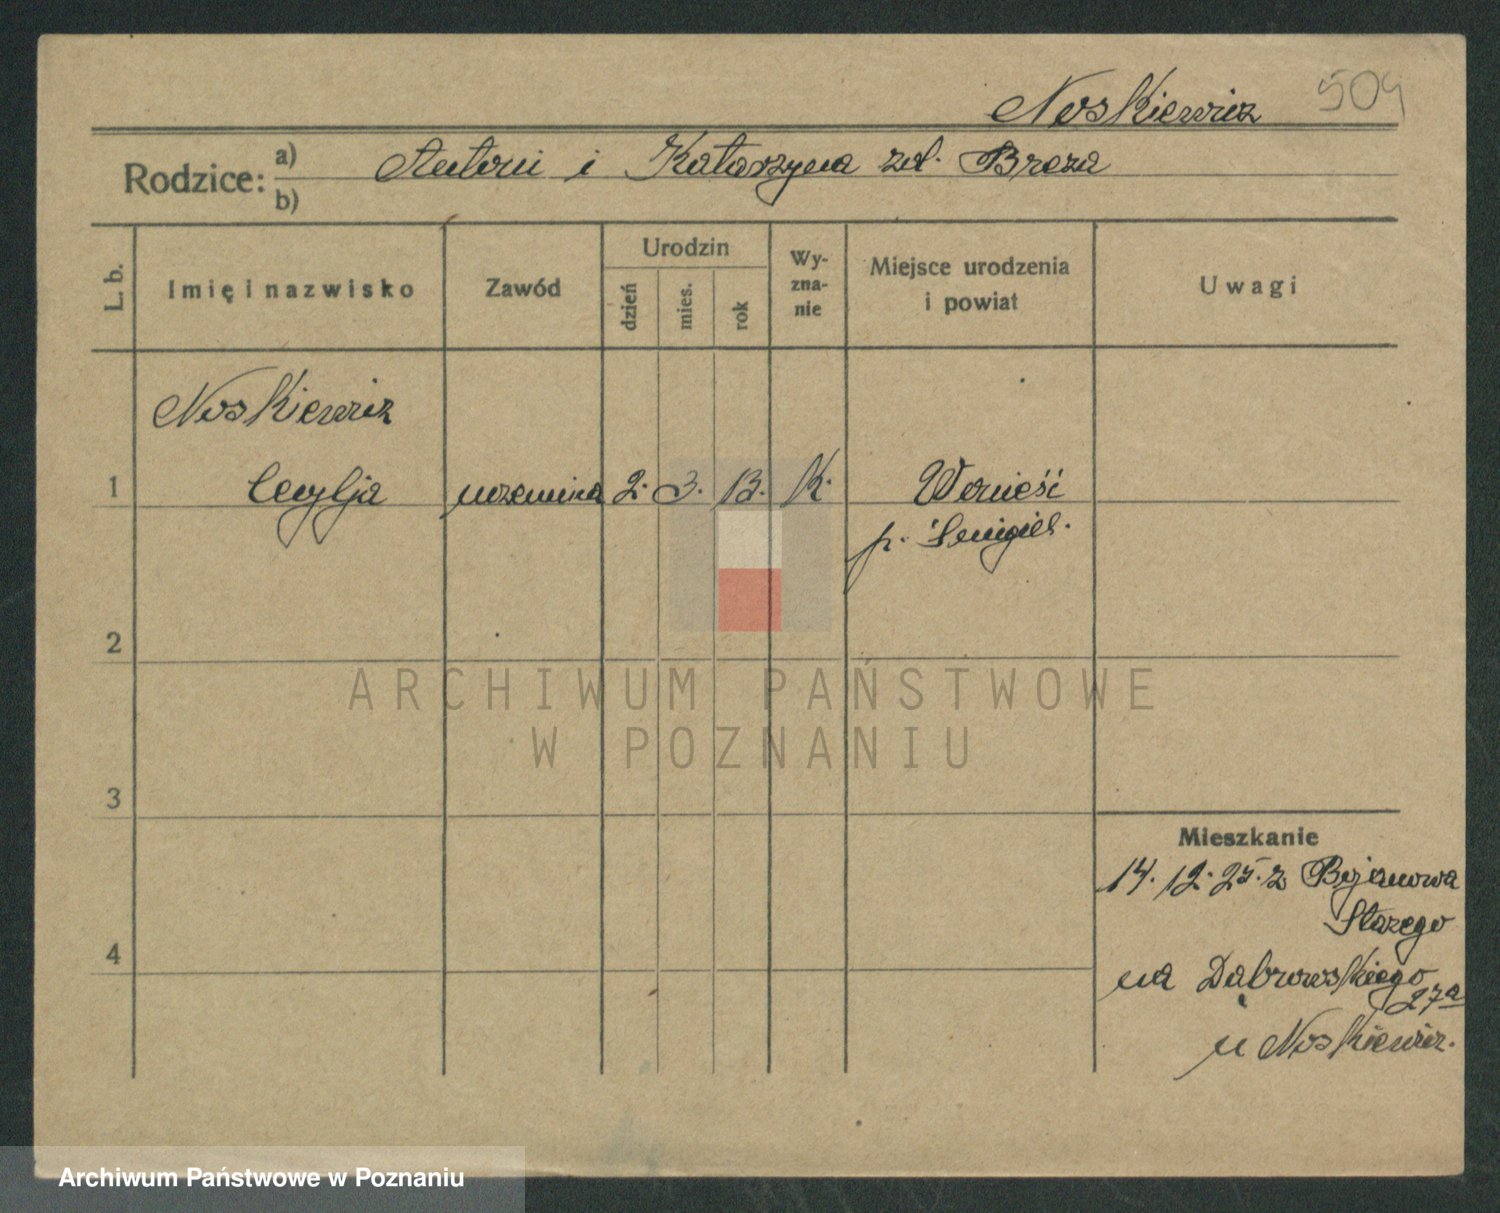 Noskiewicz 504
Rodzice: a) Antoni i Katarzyna zd. Breza
b)
L. b.
Imię i nazwisko
Zawód
Urodzin
dzień
mies.
rok
Wy-
zna-
nie
Miejsce urodzenia
i powiat
Uwagi
Noskiewicz
1 Cecylja uczennica 2. 3. 13. K. Wonieść
p. Śmigiel.
2
ARCHIWUM PAŃSTWOWE
W POZNANIU
3
Mieszkanie
14. 12. 25. z Bojanowa
Starego
4
na Dąbrowskiego
27a
u Noskiewicz.
Archiwum Państwowe w Poznaniu